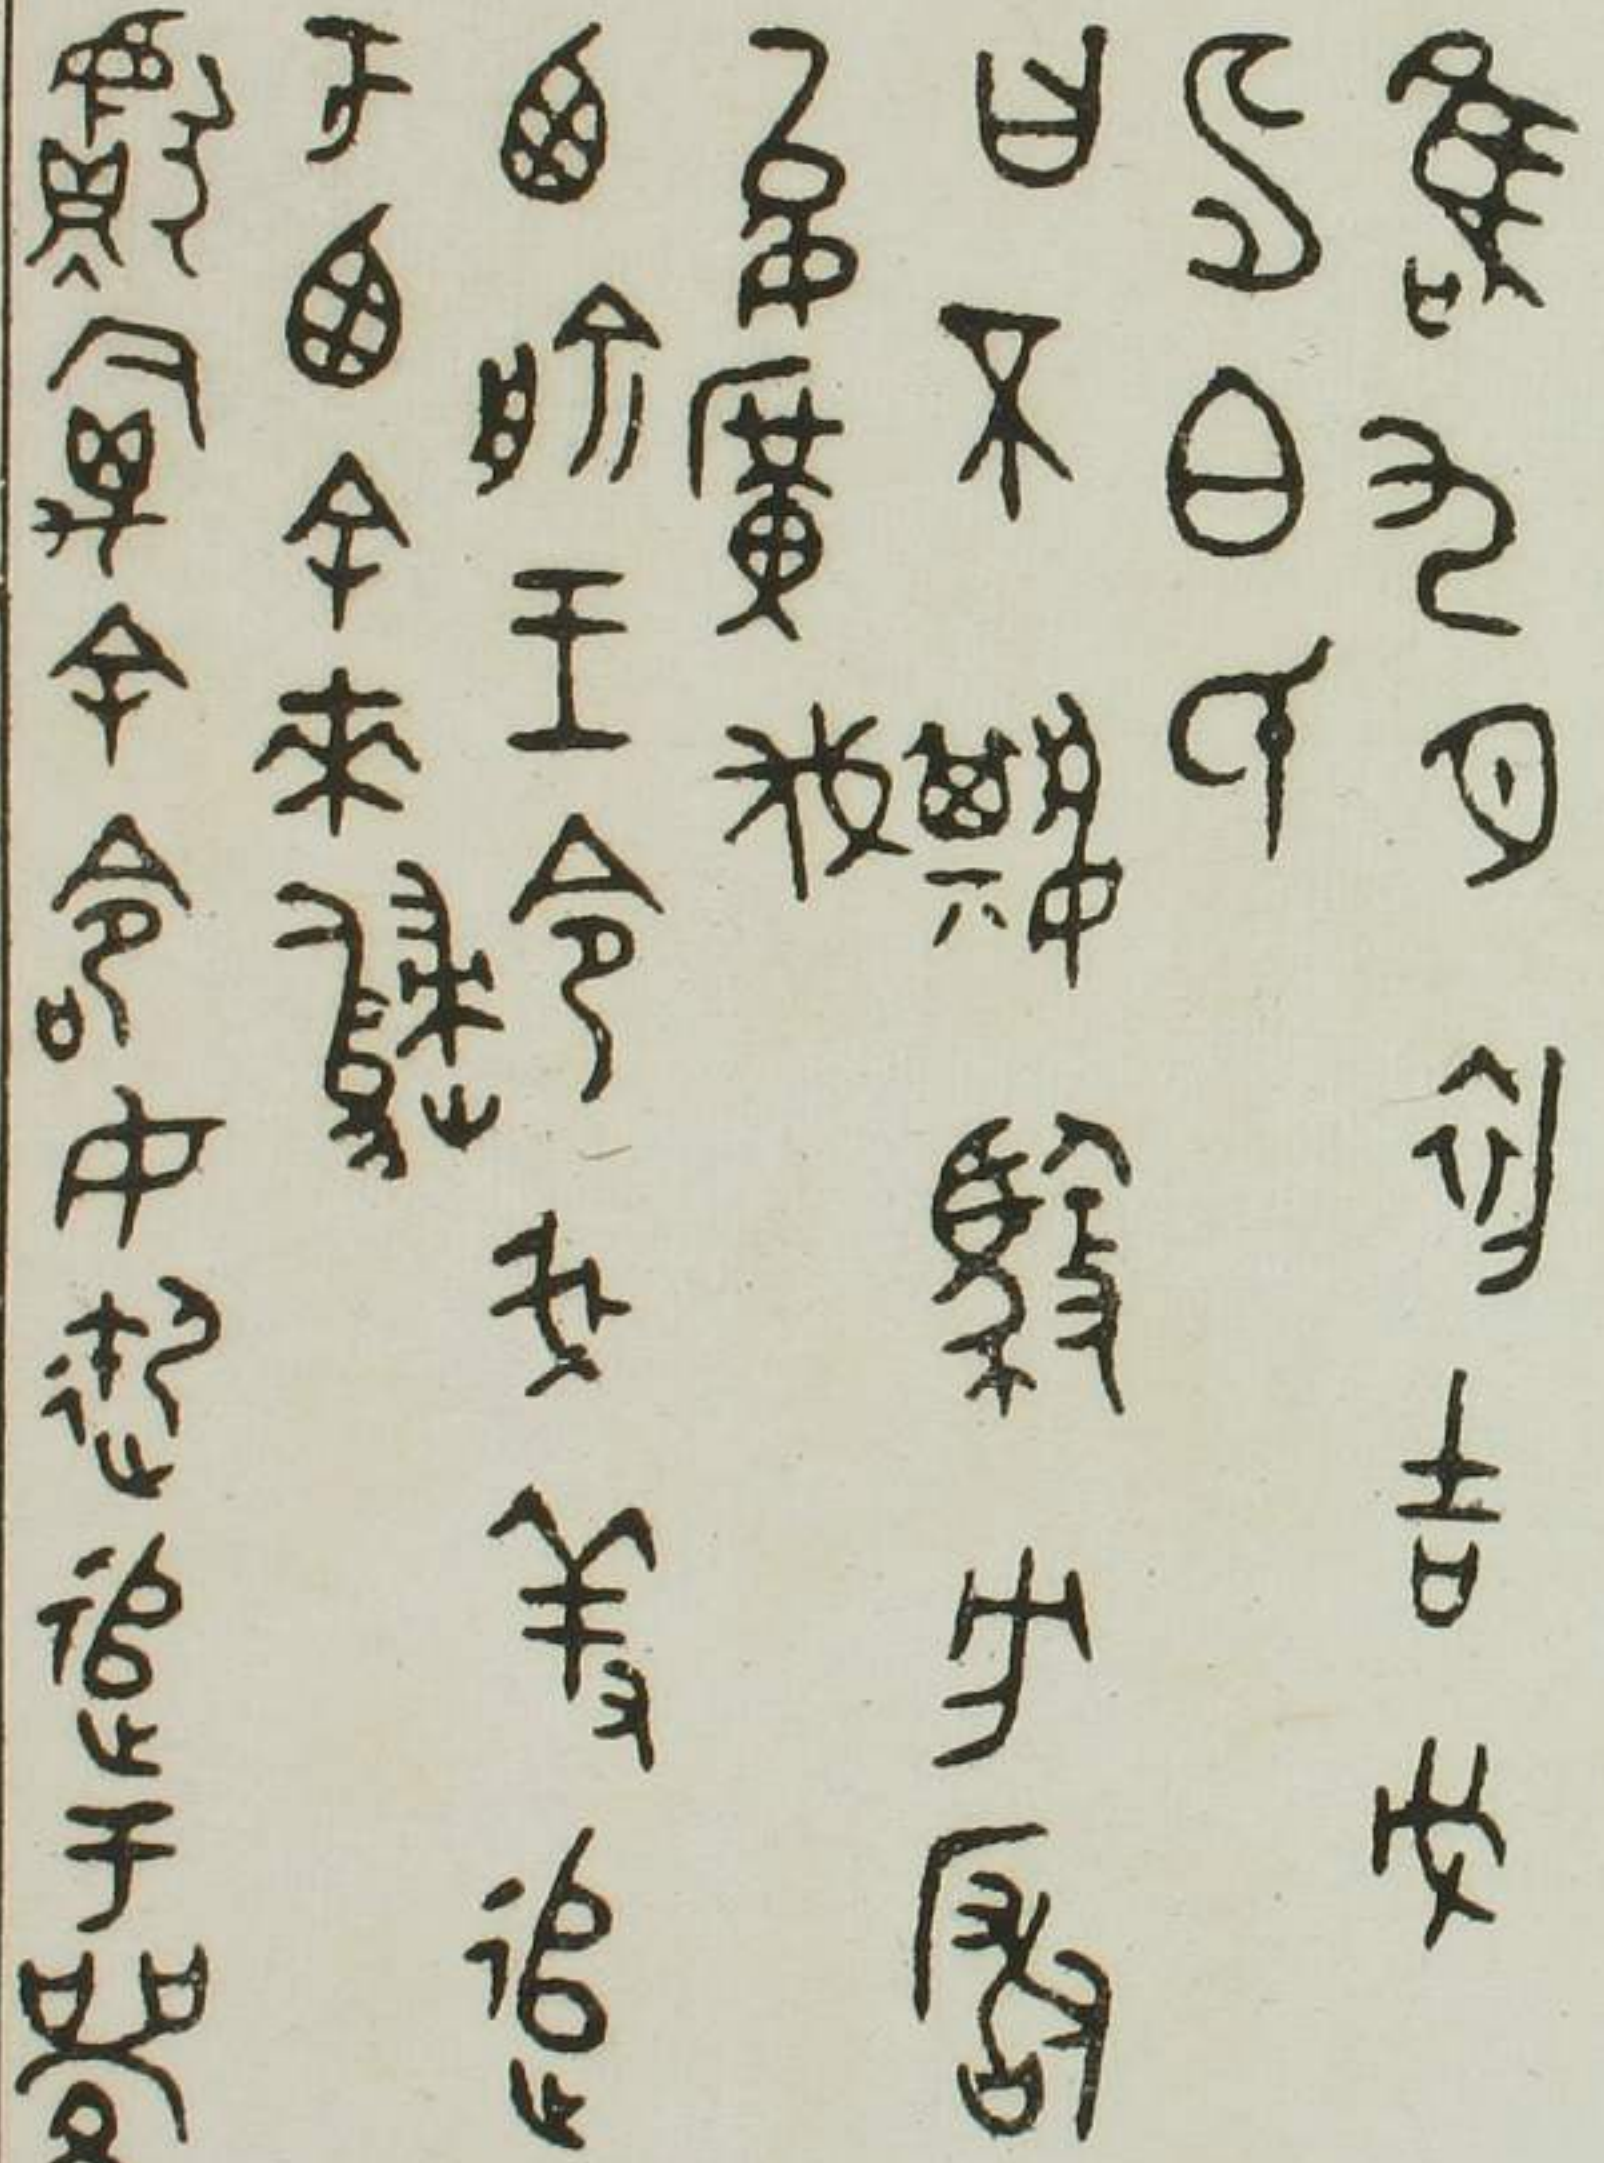 唯九月初吉戊
申白氏
曰不𡢁馭方厰
允廣伐
西俞王令我羞追
于西余來歸
獻禽余命女御追于